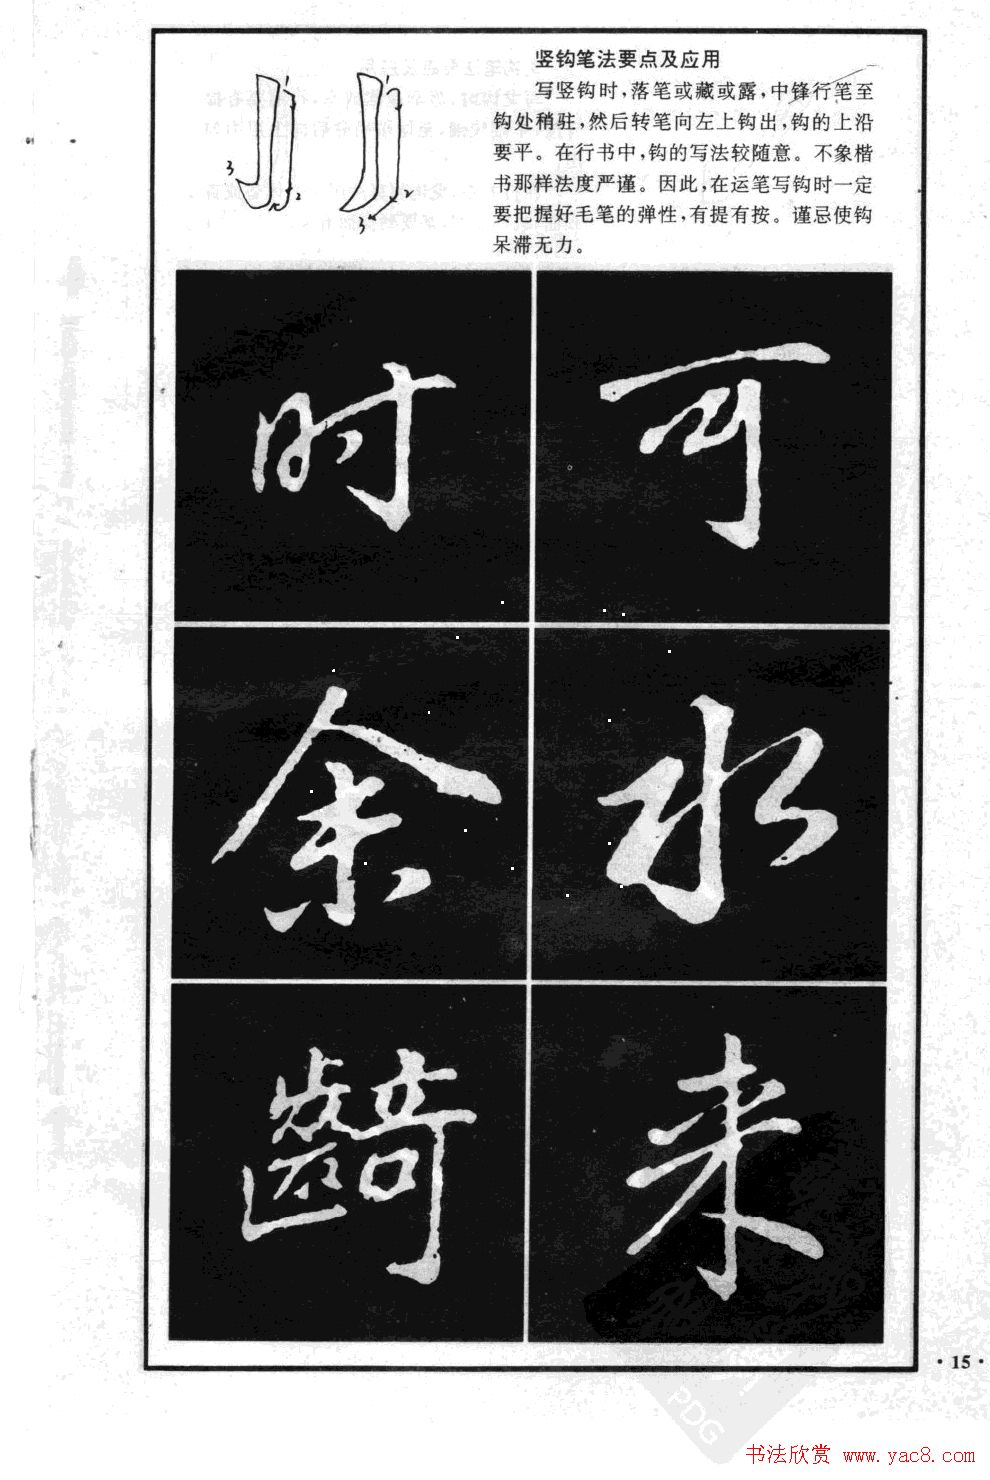 竖钩笔法要点及应用
写竖钩时，落笔或藏或露，中锋行笔至
钩处稍驻，然后转笔向左上钩出，钩的上沿
要平。在行书中，钩的写法较随意。不象楷
书那样法度严谨。因此，在运笔写钩时一定
要把握好毛笔的弹性，有提有按。谨忌使钩
呆滞无力。
1
2
3
1
2
3
时 可
余 水
齮 来
·15·
PDG
书法欣赏 www.yac8.com